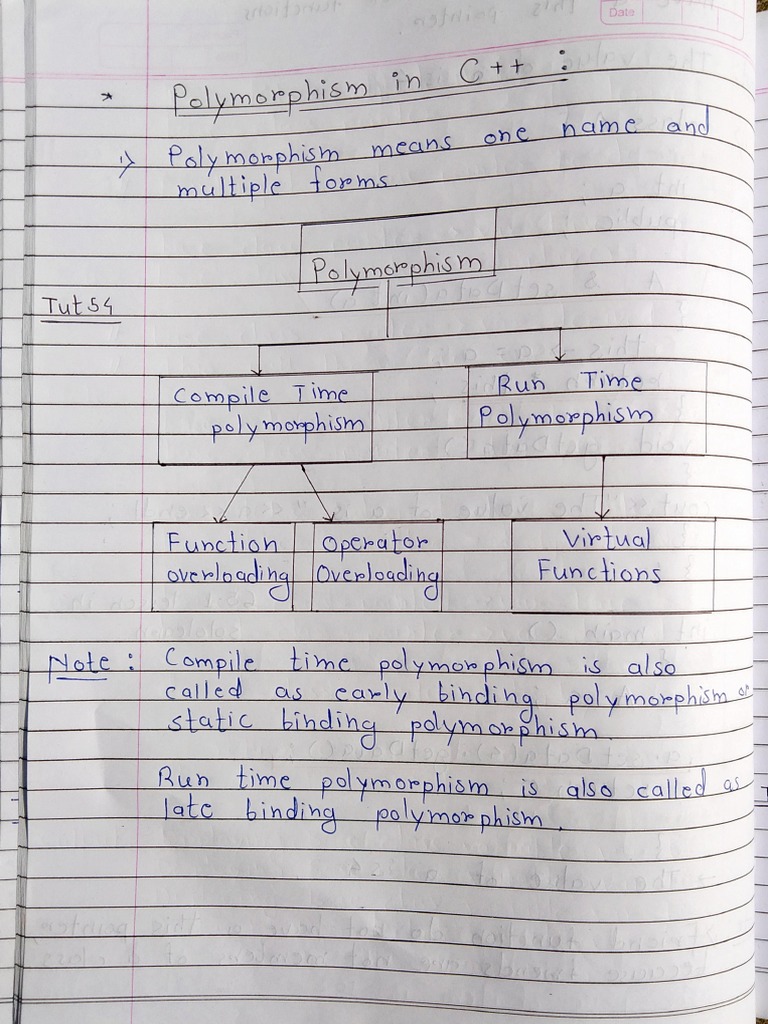 Date
* Polymorphism in C++ :
1) Polymorphism means one name and
multiple forms.
Polymorphism
Tut 54
Compile Time
polymorphism
Run Time
Polymorphism
Function
overloading
Operator
Overloading
Virtual
Functions
Note : Compile time polymorphism is also
called as early binding polymorphism or
static binding polymorphism.
Run time polymorphism is also called as
late binding polymorphism.